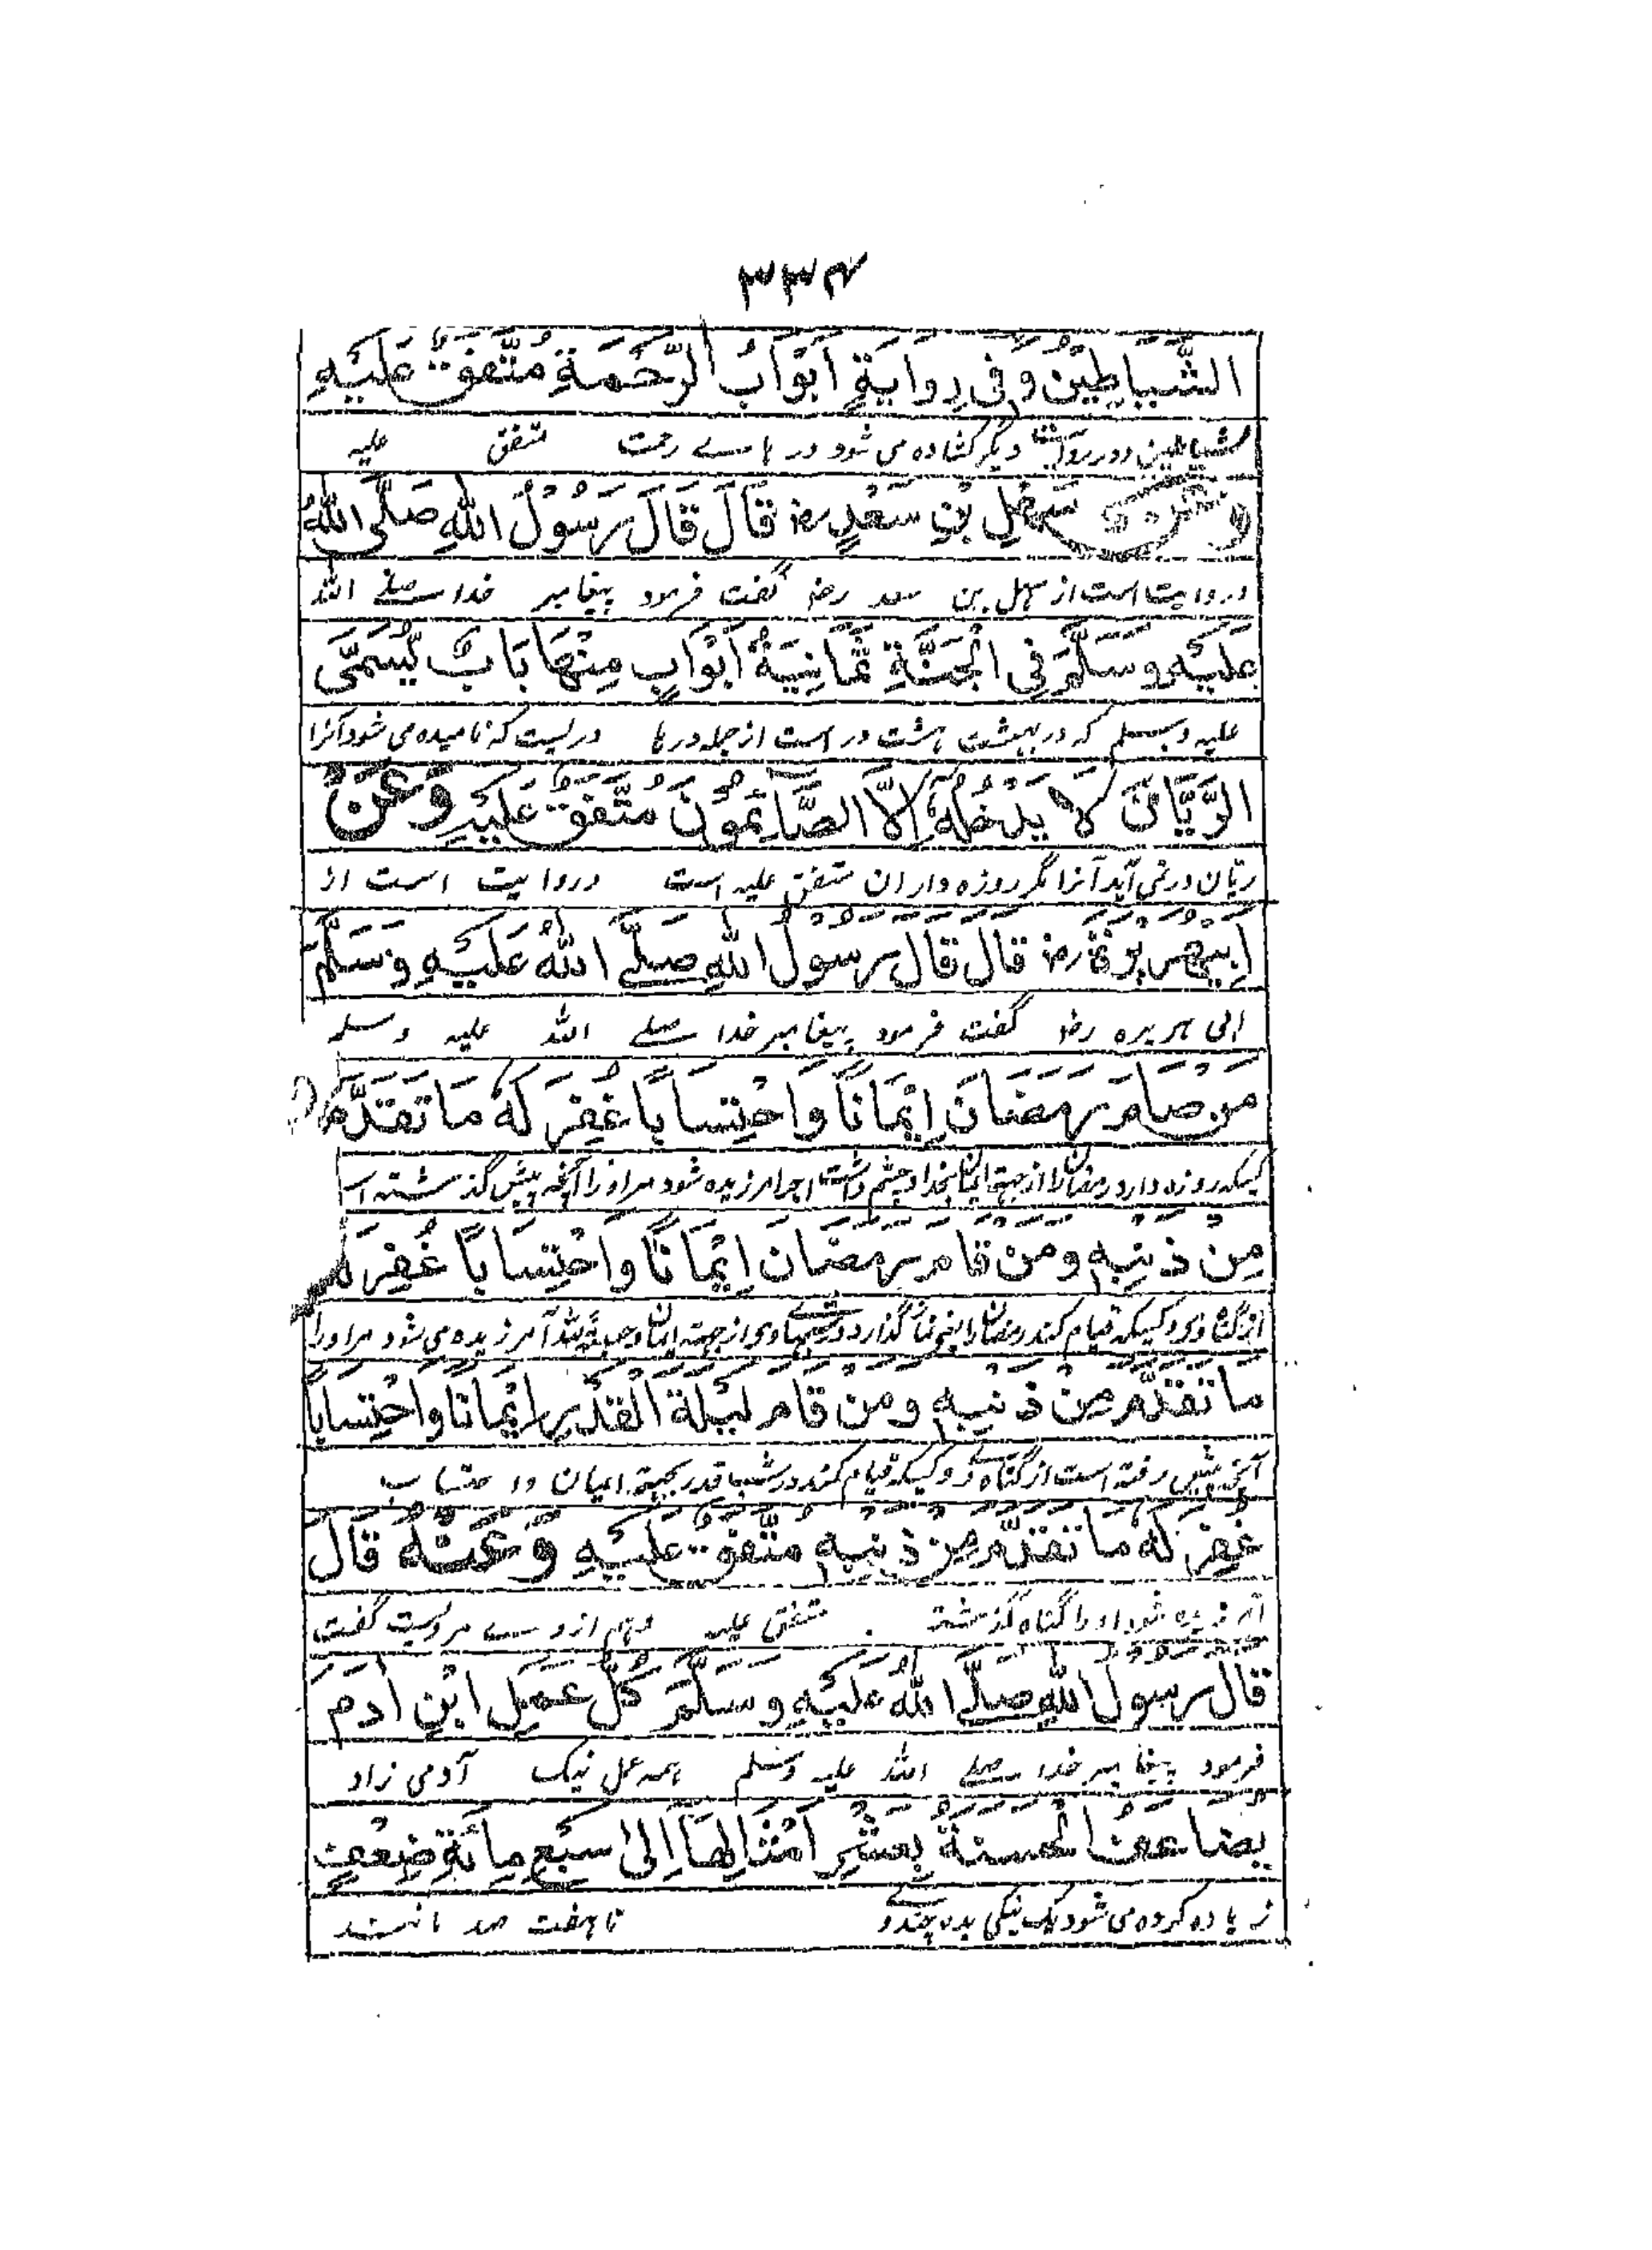 ۳۳۴
الشَّيَاطِيْنُ وَفِي رِوَايَةٍ اَبْوَابُ الرَّحْمَةِ مُتَّفَقٌ عَلَيْهِ
شیاطین ودر روایت دیگر کشاده می شود در هاے رحمت متفق علیه
وَعَنْ سَهْلِ بْنِ سَعْدٍ رض قَالَ قَالَ رَسُوْلُ اللهِ صَلَّى اللهُ
وروایت است از سهل بن سعد رضه گفت فرمود پیغامبر خدا صلے الله
عَلَيْهِ وَسَلَّمَ فِي الْجَنَّةِ ثَمَانِيَةُ اَبْوَابٍ مِنْهَا بَابٌ يُّسَمَّى
علیه وسلم که در بهشت هشت در است از جمله درها دریست که نامیده می شود آنرا
الرَّيَّانَ لَا يَدْخُلُهُ اِلَّا الصَّائِمُوْنَ مُتَّفَقٌ عَلَيْهِ وَعَنْ
ریّان در نمی آید آنرا مگر روزه داران متفق علیه است وروایت است از
اَبِيْ هُرَيْرَةَ رض قَالَ قَالَ رَسُوْلُ اللهِ صَلَّے اللهُ عَلَيْهِ وَسَلَّمَ
ابی هریره رضه گفت فرمود پیغامبر خدا صلے الله علیه وسلم
مَنْ صَامَ رَمَضَانَ اِيْمَانًا وَّاحْتِسَابًا غُفِرَ لَهُ مَا تَقَدَّمَ
کسیکه روزه دارد رمضان را از جهة ایمان بخدا وچشم داشت اجر آمرزیده شود مر او را آنچه پیش گذشته است
مِنْ ذَنْبِهِ وَمَنْ قَامَ رَمَضَانَ اِيْمَانًا وَّاحْتِسَابًا غُفِرَ لَهُ
از گناه وی وکسیکه قیام کند رمضان را یعنی نماز گذارد در شبهاے وی از جهة ایمان آمرزیده می شود مر او را
مَا تَقَدَّمَ مِنْ ذَنْبِهِ وَمَنْ قَامَ لَيْلَةَ الْقَدْرِ اِيْمَانًا وَّاحْتِسَابًا
آنچه پیش رفته است از گناه وکسیکه قیام کند در شب قدر بجهة ایمان واحتساب
غُفِرَ لَهُ مَا تَقَدَّمَ مِنْ ذَنْبِهِ مُتَّفَقٌ عَلَيْهِ وَعَنْهُ قَالَ
آمرزیده شود او را گناه گذشته متفق علیه وهم از وے مرویست گفت
قَالَ رَسُوْلُ اللهِ صَلَّے اللهُ عَلَيْهِ وَسَلَّمَ كُلُّ عَمَلِ ابْنِ اٰدَمَ
فرمود پیغامبر خدا صلے الله علیه وسلم همه عمل نیک آدمی زاد
يُضَاعَفُ الْحَسَنَةُ بِعَشْرِ اَمْثَالِهَا اِلٰى سَبْعِ مِائَةِ ضِعْفٍ
زیاده کرده می شود یک نیکی بده چندے تا هفت صد مانند